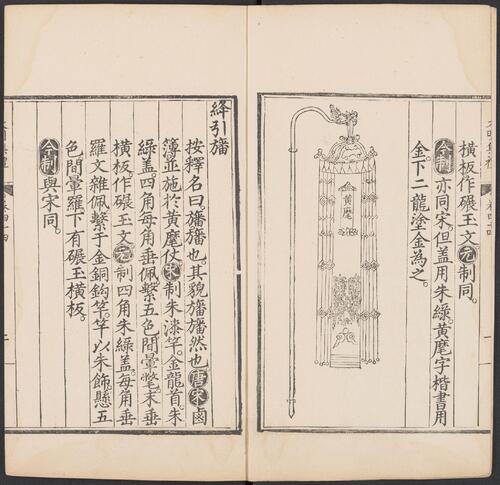 橫板作碾玉文。元制同。
今制亦同宋。但蓋用朱綠。黃麾字楷書用
金。下二龍塗金為之。
黃麾
絳引旛
按釋名曰。旛旛也。其貌旛旛然也。唐宋鹵
簿並施於黃麾仗。宋制朱漆竿。金龍首。朱
綠蓋四角。每角垂佩繫五色間暈氅。末垂
橫板。作碾玉文。元制四角朱綠蓋。每角垂
羅文雜佩。繫于金銅鉤竿。竿以朱飾。懸五
色間暈羅。下有碾玉橫板。
今制與宋同。